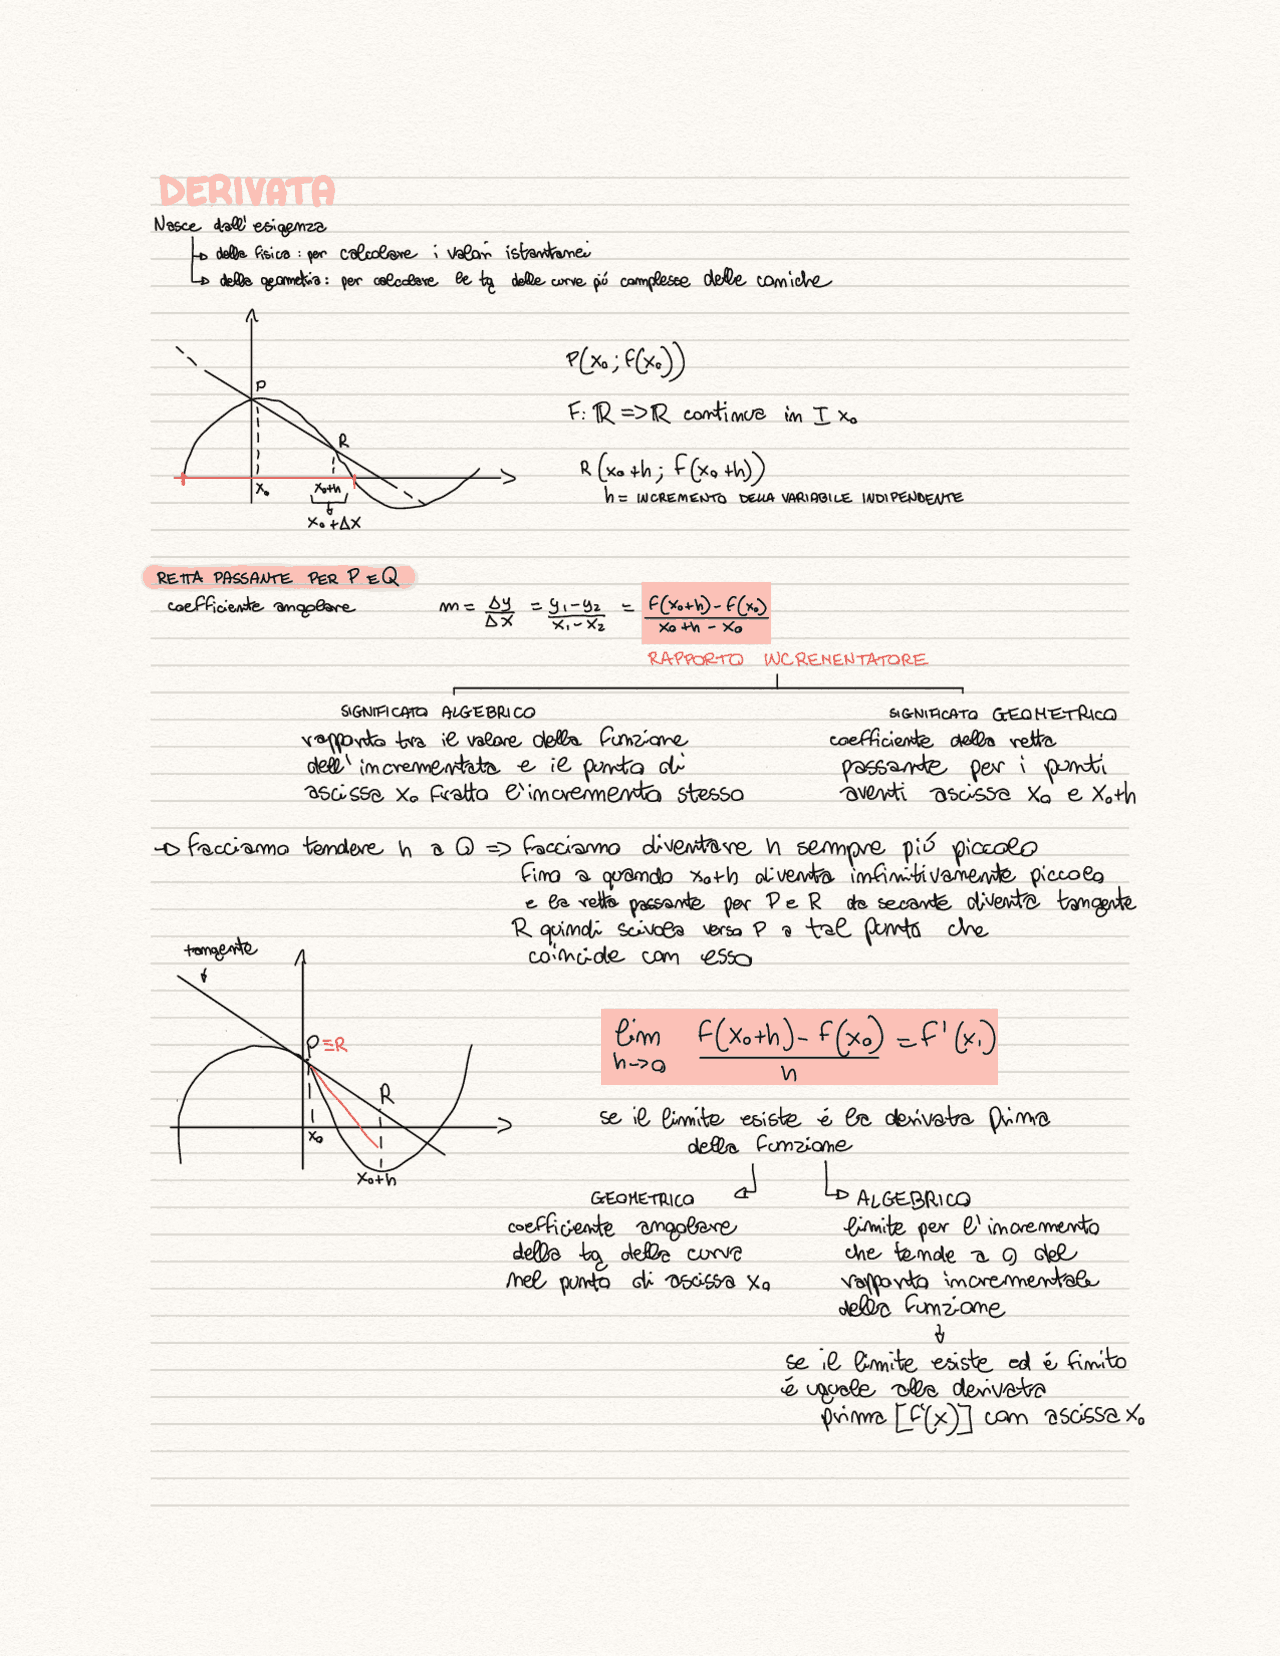 DERIVATA
Nasce dall'esigenza
della fisica: per calcolare i valori istantanei
della geometria: per calcolare le tg delle curve più complesse delle coniche
P
R
x₀
x₀+h
x₀+Δx
P(x₀; f(x₀))
F: ℝ => ℝ continua in I x₀
R(x₀+h; f(x₀+h))
h = INCREMENTO DELLA VARIABILE INDIPENDENTE
RETTA PASSANTE PER P e Q
coefficiente angolare m = Δy/Δx = y₁-y₂/x₁-x₂ = f(x₀+h)-f(x₀)/x₀+h-x₀
RAPPORTO INCREMENTATORE
SIGNIFICATO ALGEBRICO
rapporto tra il valore della funzione
dell'incrementata e il punto di
ascissa x₀ fratto l'incremento stesso
SIGNIFICATO GEOMETRICO
coefficiente della retta
passante per i punti
aventi ascissa x₀ e x₀+h
→ facciamo tendere h a 0 => facciamo diventare h sempre più piccolo
fino a quando x₀+h diventa infinitivamente piccolo
e la retta passante per P e R da secante diventa tangente
R quindi scivola verso P a tal punto che
coincide con esso
tangente
P≡R
R
x₀
x₀+h
lim h->0 f(x₀+h)-f(x₀)/h = f'(x₁)
se il limite esiste é la derivata prima
della funzione
GEOMETRICO
coefficiente angolare
della tg della curva
nel punto di ascissa x₀
ALGEBRICO
limite per l'incremento
che tende a 0 del
rapporto incrementale
della funzione
se il limite esiste ed é finito
é uguale alla derivata
prima [f'(x)] con ascissa x₀